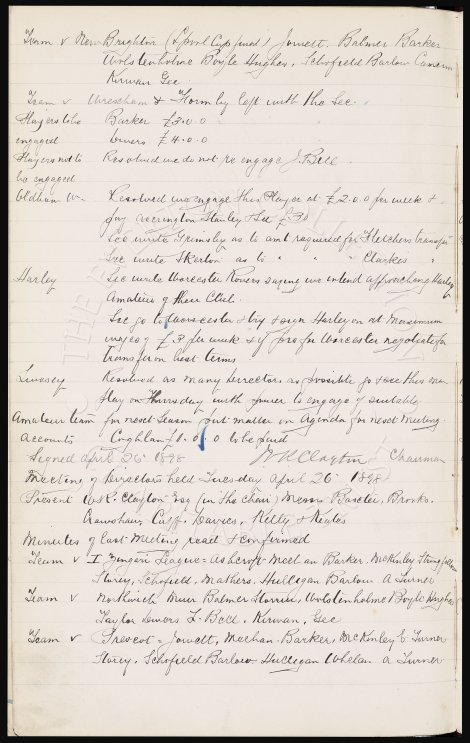 Team v New Brighton (Lpool Cup final) Jowett. Balmer Barker
Wolstenholme Boyle Hughes, Schofield Barlow Cameron
Kirwan Gee
Team v Wrexham & Formby left with the Sec.
Players to be Barker £3.0.0
engaged Owens £4.0.0
Players not to Resolved we do not re engage J. Bell.
be engaged
Oldham W. Resolved we engage this Player at £2.0.0 per week &
pay Accrington Stanley & Dis £
Sec write Grimsby as to amt required for Fletchers transfer
Sec write Skerton as to " " " Clarkes "
Harley Sec write Worcester Rovers saying we intend approaching Harley
Amateur of their Club.
Sec go to Worcester & try & sign Harley on at maximum
wages of £3 per week & if pro for Worcester negotiate for
Transfer on best terms
Livesey Resolved as many Directors as possible go & see this man
play on Thursday with power to engage if suitable
Amateur team for next Season put matter on Agenda for next Meeting.
Accounts Coghlan £1.0.0 to be paid
Signed April 26 1898 W R Clayton Chairman
Meeting of Directors held Tuesday April 26 1898
Present W R. Clayton Esq (in the chair) Messrs Baxter, Brooks.
Crawshaw Cuff. Davies, Kelly & Keates
Minutes of last Meeting read & confirmed
Team v I Zingari League = Ashcroft Meehan Barker, McKinley Stringfellow
Storey, Schofield, Mathers, Hulligan Barlow A Turner
Team v Northwich Muir Balmer Storrier, Wolstenholme Boyle Hughes
Taylor Owens L. Bell. Kirwan, Gee
Team v Prescot = Jowett, Meehan. Barker, McKinley E Turner
Storey, Schofield Barlow Hulligan Whelan A Turner